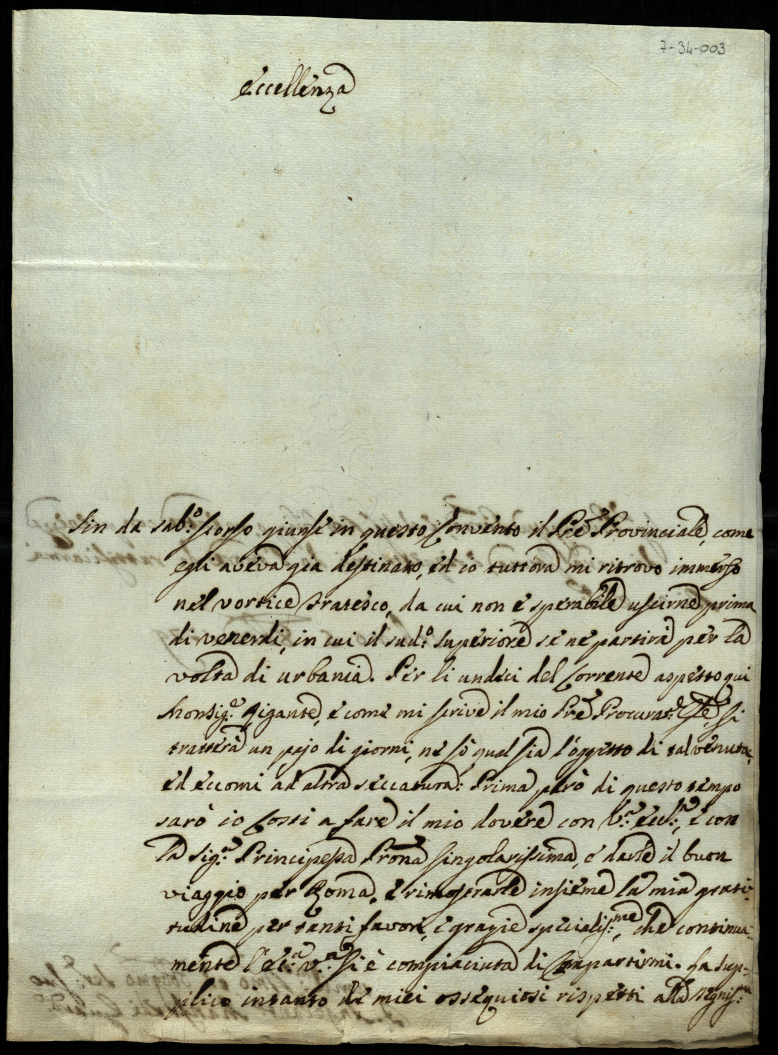 7-34-003
Eccellenza
Sin da sab.o scorso giunse in questo Convento il Prē Provinciale, come
egli aveva gia destinato, ed io tuttora mi ritrovo immerso
nel vortice fratesco, da cui non è sperabile uscirne prima
di venerdi, in cui il sud.o superiore se ne partirà per la
volta di urbania. Per li undeci del Corrente aspetto qui
Monsig.r Gigante, e come mi scrive il mio Prē Procurat.e Gñle, si
tratterà un pajo di giorni, ne sò qual sia l'oggetto di tal venuta,
ed eccomi ad altra seccatura: Prima però di questo tempo
sarò io Costi a fare il mio dovere con V.ra Ecc.za, e con
la Sig.ra Principessa Prōna singolarissima, e darle il buon
viaggio per Roma, e rimostrarle insieme la mia grati-
tudine per tanti favori, e grazie specialis.me, che continua-
mente l'Ec.za V.ra si è compiaciuta di Compartirmi. La sup-
plico intanto de miei ossequiosi rispetti alla degnis.ma